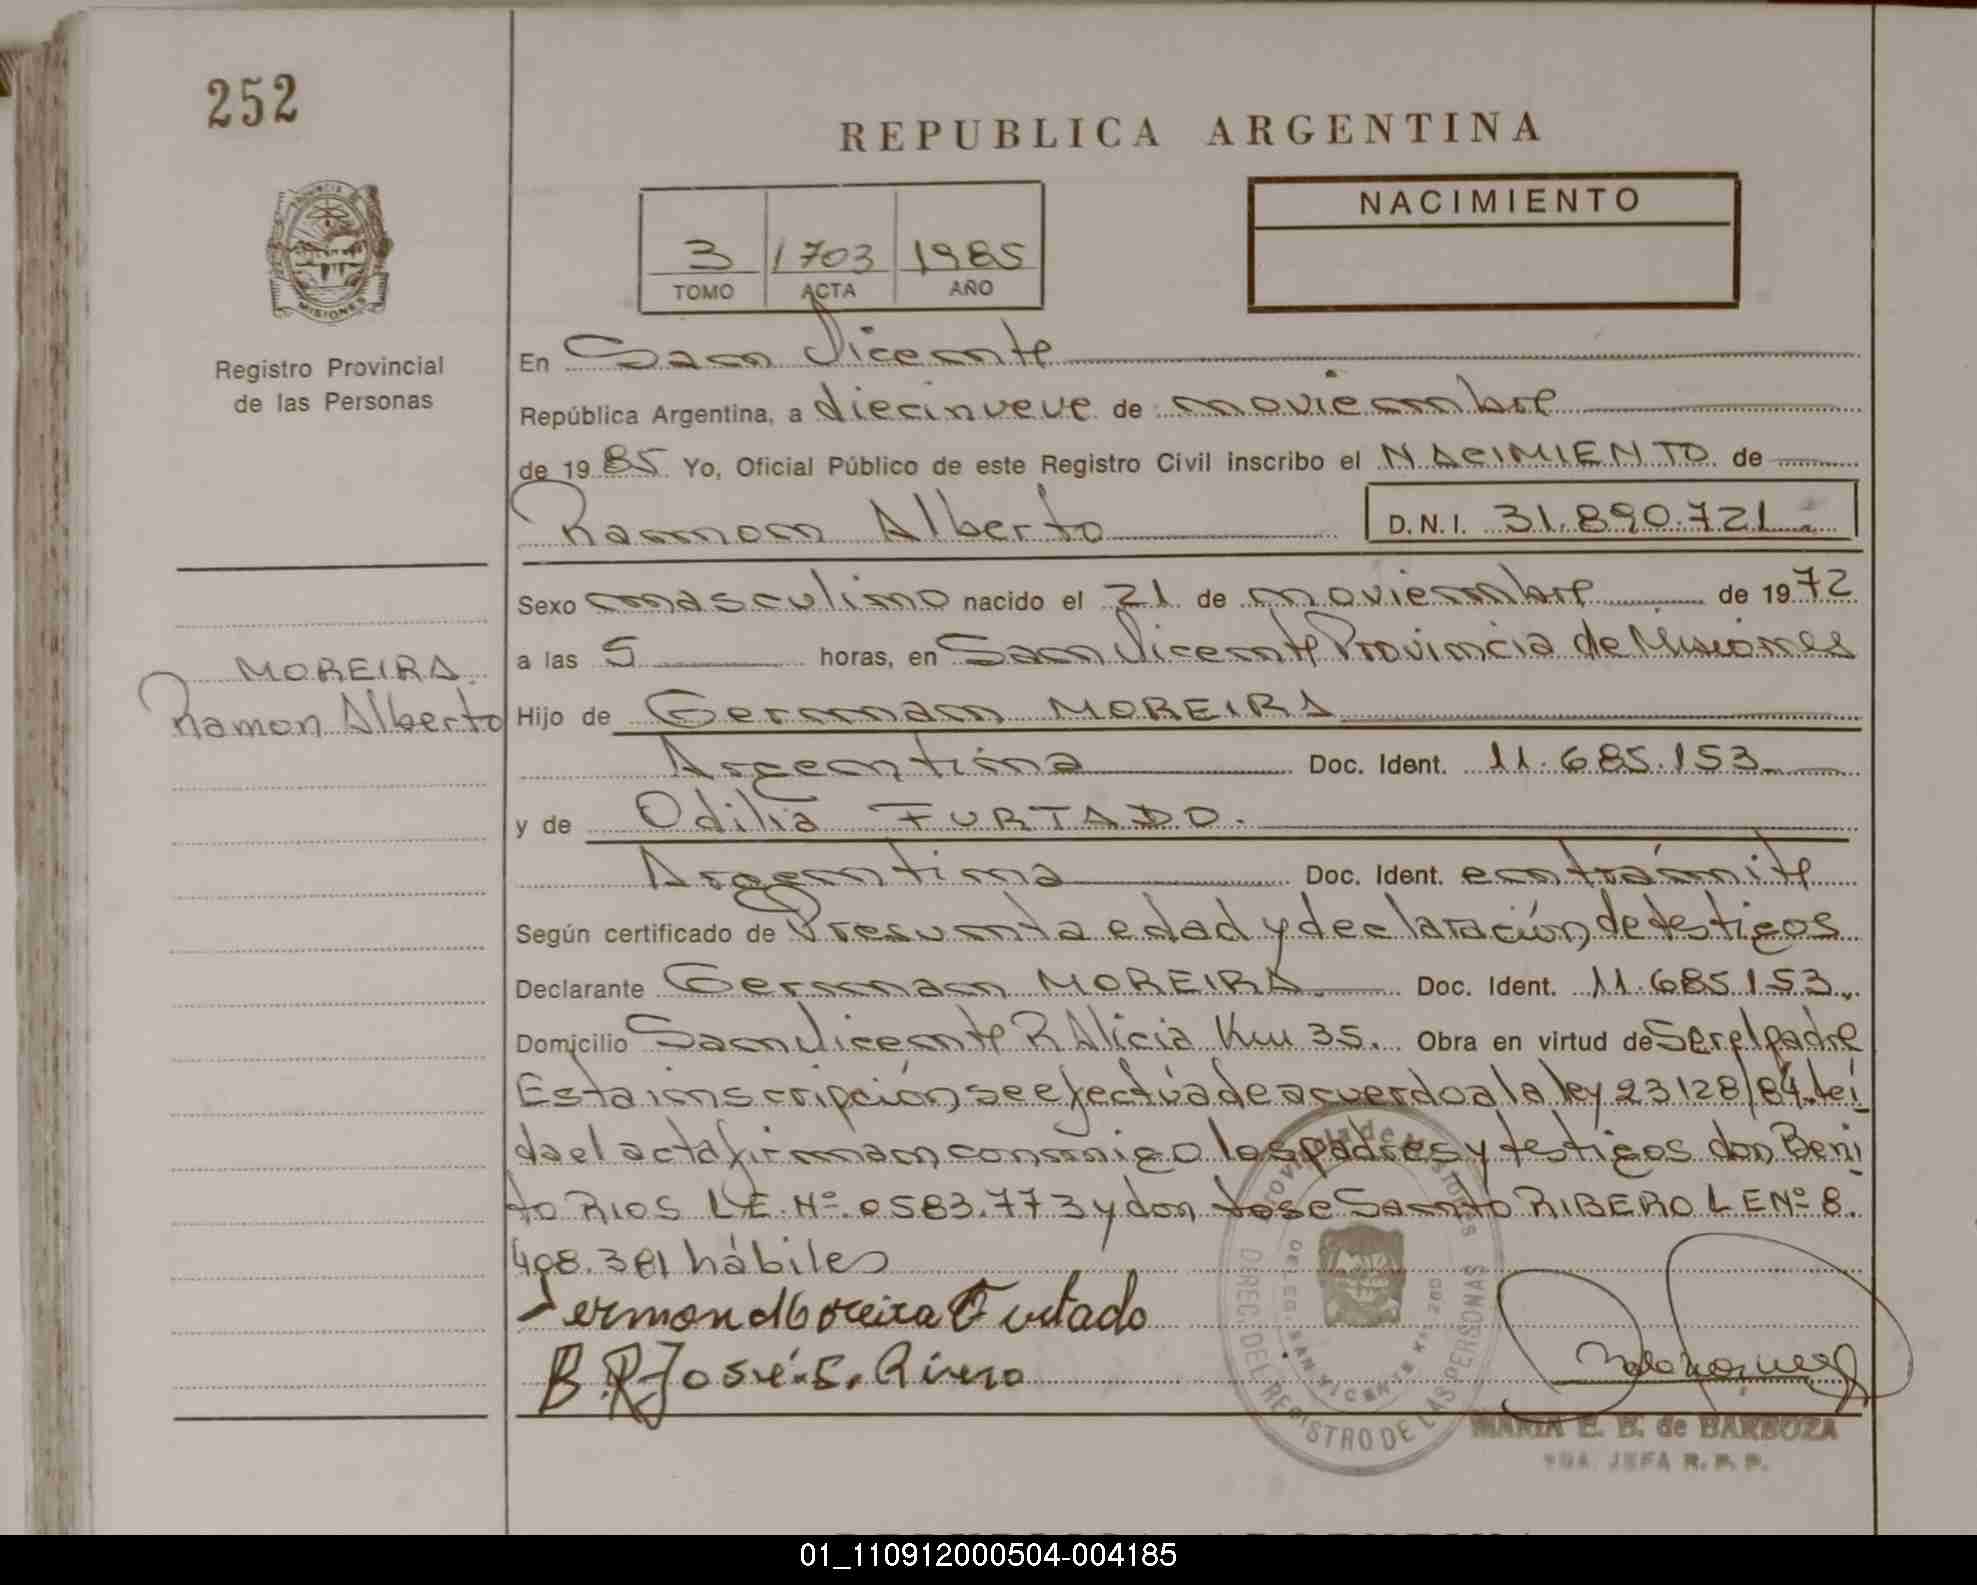 252
REPUBLICA ARGENTINA
NACIMIENTO
3 1703 1985
TOMO ACTA AÑO
PROVINCIA DE
MISIONES
Registro Provincial
de las Personas
En San Vicente
República Argentina, a diecinueve de noviembre
de 1985 Yo, Oficial Público de este Registro Civil inscribo el NACIMIENTO de
Ramon Alberto D.N.I. 31.890.721
MOREIRA
Ramon Alberto
Sexo masculino nacido el 21 de noviembre de 1972
a las 5 horas, en San Vicente Provincia de Misiones
Hijo de German MOREIRA
Argentina Doc. Ident. 11.685.153
y de Odilia FURTADO.
Argentina Doc. Ident. en trámite
Según certificado de Presunta edad y declaración de testigos
Declarante German MOREIRA Doc. Ident. 11.685.153
Domicilio San Vicente R Alicia Km 35. Obra en virtud de Ser el padre
Esta inscripción se efectúa de acuerdo a la ley 23128/84. Leí
da el acta firman conmigo los padres y testigos don Beni
to RIOS L.E. Nº 0583.773 y don Jose Santo RIBERO L E Nº 8.
408.381 hábiles
German Moreira O Furtado
B.R José.S. Rivero
Provincia de Misiones
DIREC. DEL REGISTRO DE LAS PERSONAS
DELEG. SAN VICENTE
MARIA E. B. de BARBOZA
JEFA R. P. P.
01_110912000504-004185